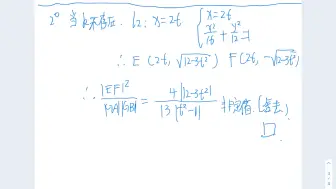 2° 当k不存在. l₂: x=2t { x=2t
x²/16 + y²/12 =1
∴ E (2t, √12-3t²) F(2t, -√12-3t²)
∴ |EF|² / = 4|12-3t²| / 13|t²-1| 非定值.(舍去)
□